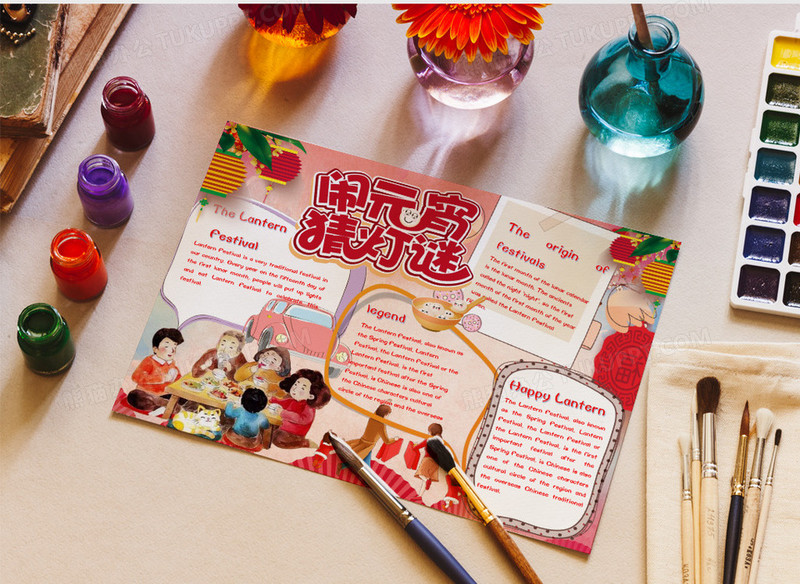 闹元宵
猜灯谜
The Lantern
Festival
Lantern Festival is a very traditional festival in
our country. Every year on the fifteenth day of
the first lunar month, people will put up lights
and set Lantern Festival to celebrate this
festival.
The origin of
festivals
The first month of the lunar calendar
is the lunar month. The ancients
called the night "night", so the first
month of the first month of the year
called the Lantern Festival.
legend
The Lantern Festival, also known as
the Spring Festival, Lantern
Festival, the Lantern Festival or the
Lantern Festival, is the first
important festival after the Spring
Festival, is Chinese is also one of
the Chinese characters cultural
circle of the region and the overseas
Happy Lantern
The Lantern Festival, also known
as the Spring Festival, Lantern
Festival, the Lantern Festival or
the Lantern Festival, is the first
important festival after the
Spring Festival, is Chinese is also
one of the Chinese characters
cultural circle of the region and
the overseas Chinese traditional
festival.